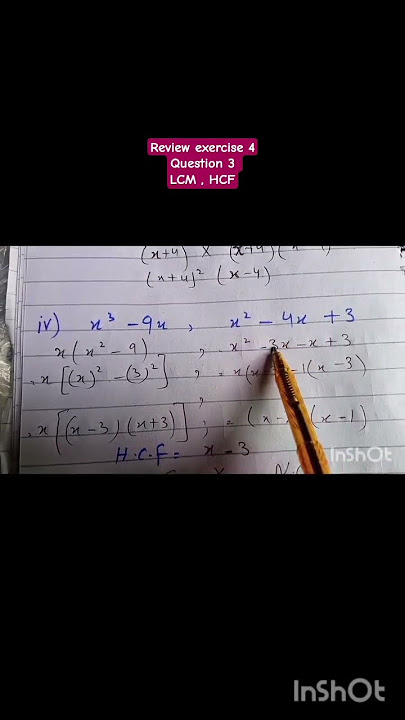 Review exercise 4
Question 3
LCM , HCF
(x+4) × (x+4)
(x+4)² (x-4)
iv) x³ - 9x , x² - 4x + 3
x(x² - 9) , x² - 3x - x + 3
x[(x)² - (3)²] , = x(x -1(x-3)
x[(x-3)(x+3)] , = (x- (x-1)
H.C.F = x - 3
InShOt
InShOt